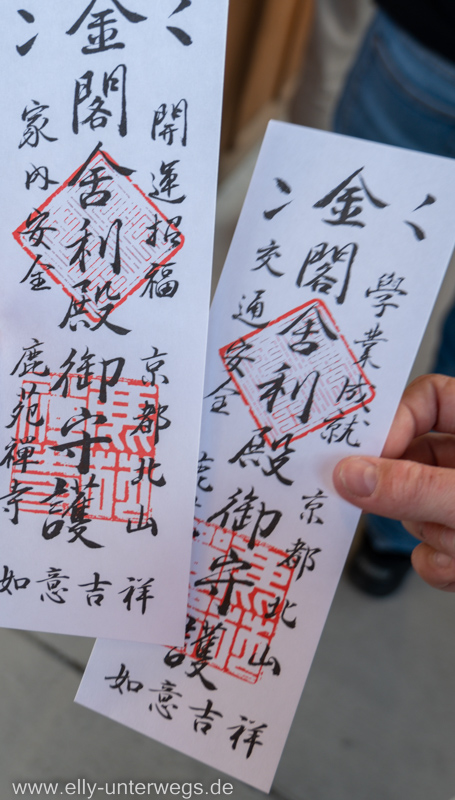 金閣舍利殿御守護
開運招福
家内安全
京都北山
鹿苑禅寺
如意吉祥
金閣舍利殿御守護
學業成就
交通安全
京都北山
如意吉祥
www.elly-unterwegs.de